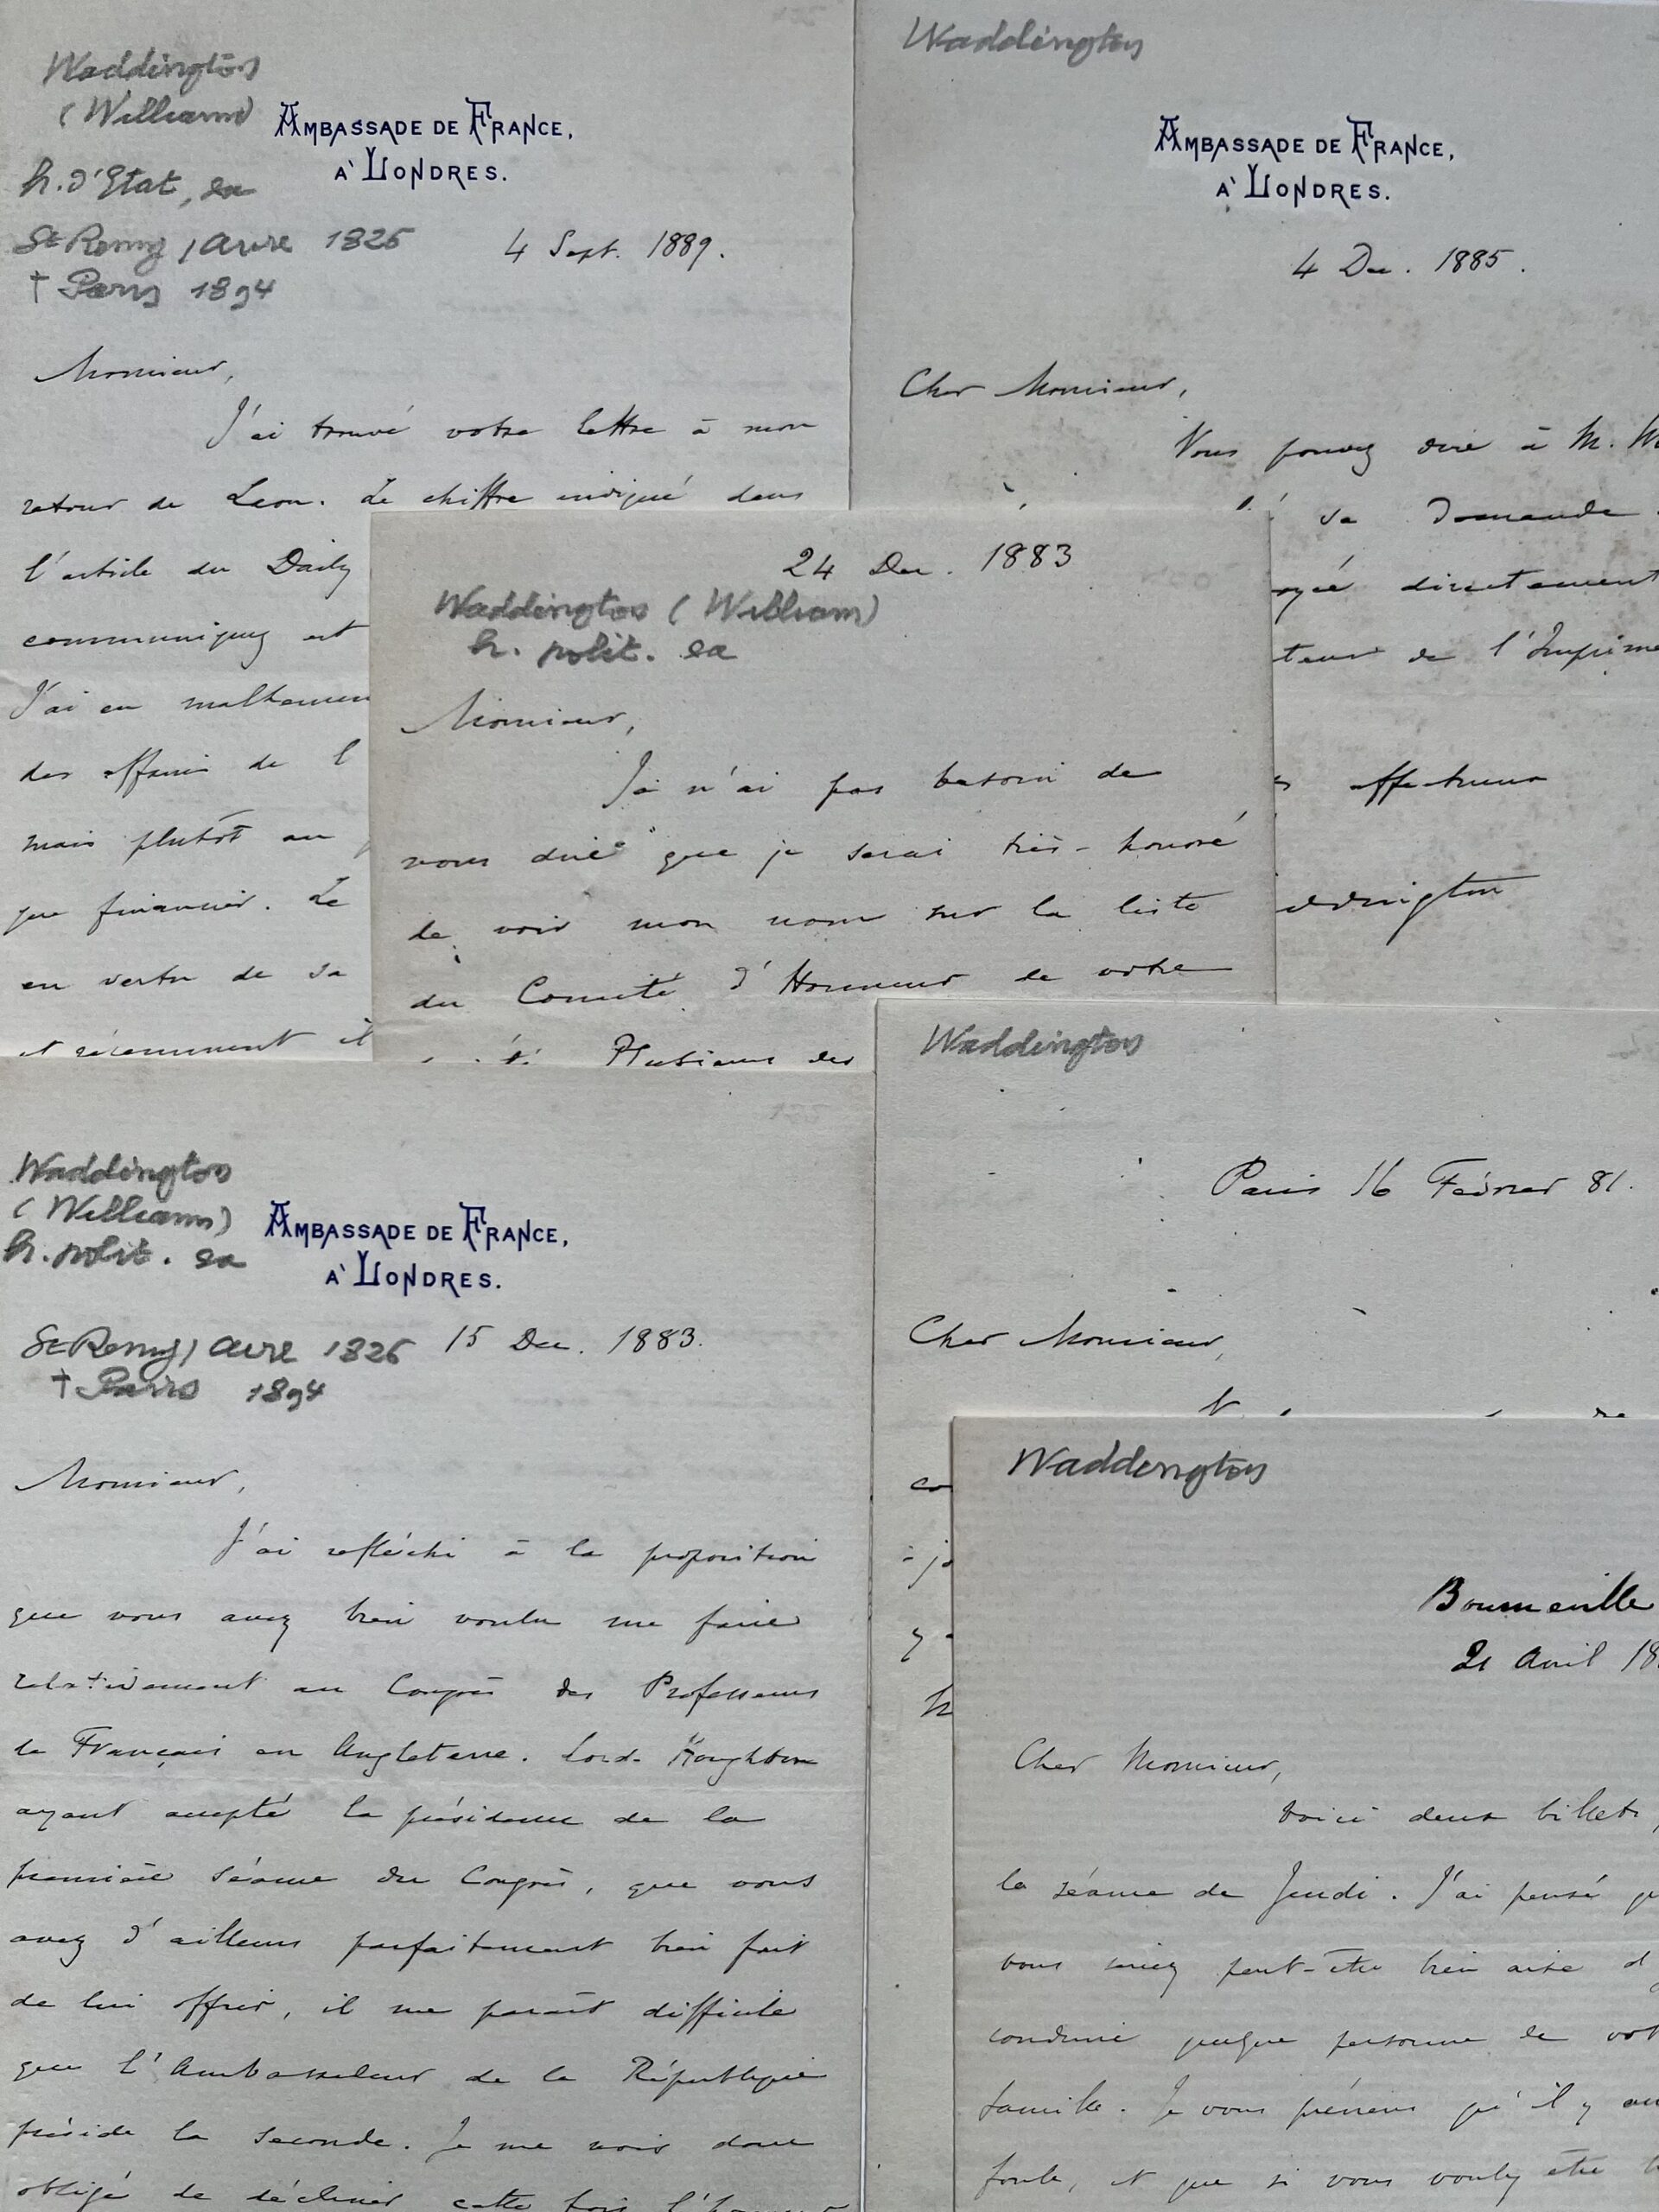 Waddington
(William)
h. d'Etat, sa
St Remy, / avre 1826
† Paris 1894
AMBASSADE DE FRANCE,
À LONDRES.
4 Sept. 1889.
Monsieur,
J'ai trouvé votre lettre à mon
retour de Laon. Le chiffre indiqué dans
l'article du Daily
communiquez est
J'ai eu malheureu
des affaires de l
mais plutôt au
que financier. Le
en vertu de sa
et récemment il
Waddington
AMBASSADE DE FRANCE,
À LONDRES.
4 Dec. 1885.
Cher Monsieur,
Vous pouvez dire à M.
sa demande
oyée directement
teur de l'Imprime
affectueux
ddington
24 Dec. 1883
Waddington (William)
h. polit. sa
Monsieur,
Je n'ai pas besoin de
vous dire que je serai très-honoré
de voir mon nom sur la liste
du Comité d'Honneur de votre
Plusieurs des
Waddington
(William)
h. polit. sa
St Remy, / avre 1826
† Paris 1894
AMBASSADE DE FRANCE,
À LONDRES.
15 Dec. 1883.
Monsieur,
J'ai réfléchi à la proposition
que vous avez bien voulu me faire
relativement au Congrès des Professeurs
de Français en Angleterre. Lord Houghton
ayant accepté la présidence de la
première séance du Congrès, que vous
avez d'ailleurs parfaitement bien fait
de lui offrir, il me parait difficile
que l'Ambassadeur de la République
préside la seconde. Je me vois donc
obligé de décliner cette fois l'honneur
Waddington
Paris 16 Février 81.
Cher Monsieur,
Waddington
Bourneville
21 Avril 18
Cher Monsieur,
Voici deux billets,
la séance de Jeudi. J'ai pensé q
vous seriez peut-être bien aise d'y
conduire quelque personne de vot
famille. Je vous préviens qu'il y au
foule, et que si vous voulez être